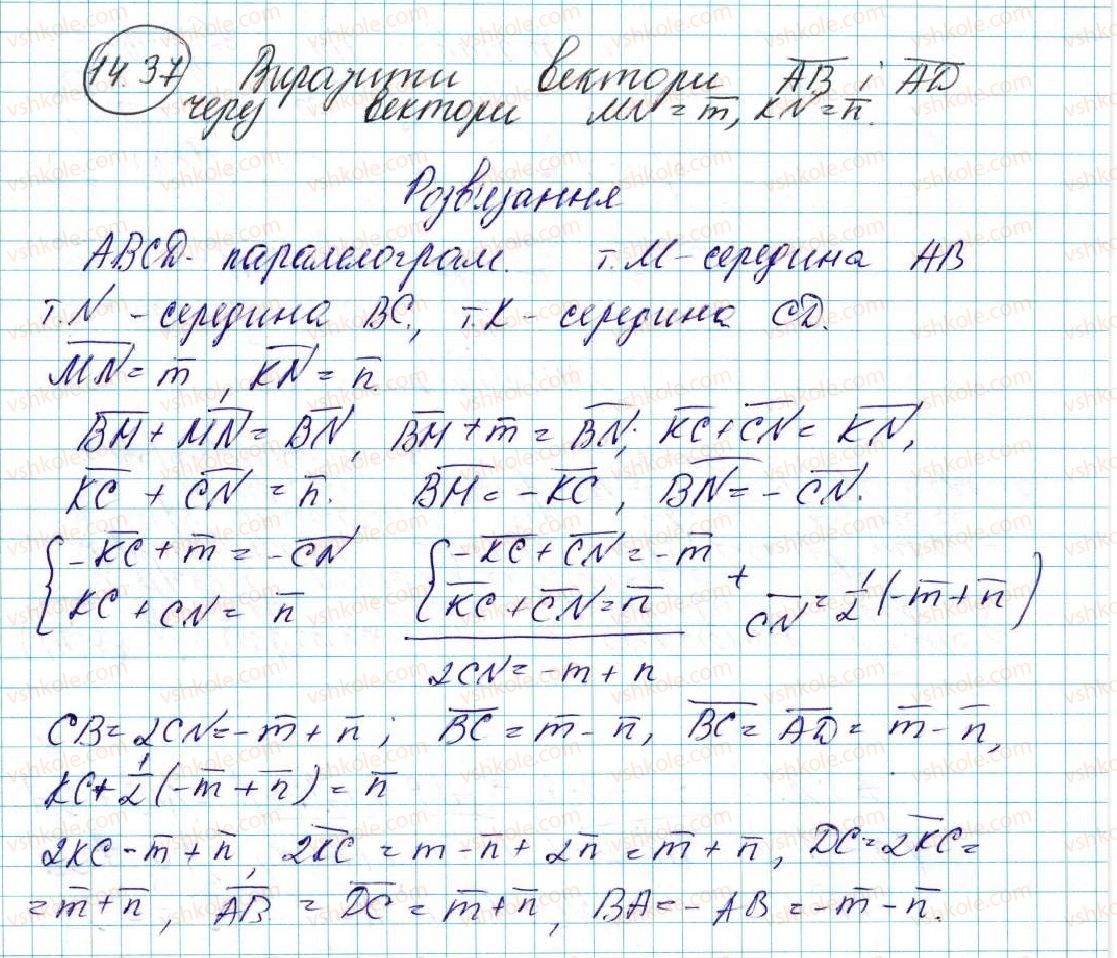 14.37 Виразити вектори A̅B̅ і A̅D̅
через вектори MN = m̅, KN = n̅.
Розв'язання
ABCD - паралелограм. т. M - середина AB
т. N - середина BC, т. K - середина CD.
M̅N̅ = m̅, K̅N̅ = n̅.
B̅M̅ + M̅N̅ = B̅N̅, B̅M̅ + m̅ = B̅N̅; K̅C̅ + C̅N̅ = K̅N̅,
K̅C̅ + C̅N̅ = n̅. B̅M̅ = -K̅C̅, B̅N̅ = -C̅N̅.
{ -K̅C̅ + m̅ = -C̅N̅ { -K̅C̅ + C̅N̅ = -m̅
KC + CN = n̅ K̅C̅ + C̅N̅ = n̅ + C̅N̅ = 1/2 (-m̅ + n̅)
2CN = -m + n
CB = 2CN = -m̅ + n̅; B̅C̅ = m̅ - n̅, B̅C̅ = A̅D̅ = m̅ - n̅,
KC + 1/2 (-m̅ + n̅) = n̅
2KC - m̅ + n̅, 2K̅C̅ = m - n̅ + 2n̅ = m̅ + n̅, DC = 2K̅C̅ =
= m̅ + n̅, A̅B̅ = D̅C̅ = m̅ + n̅, BA = - AB = -m̅ - n̅.
vshkole.com